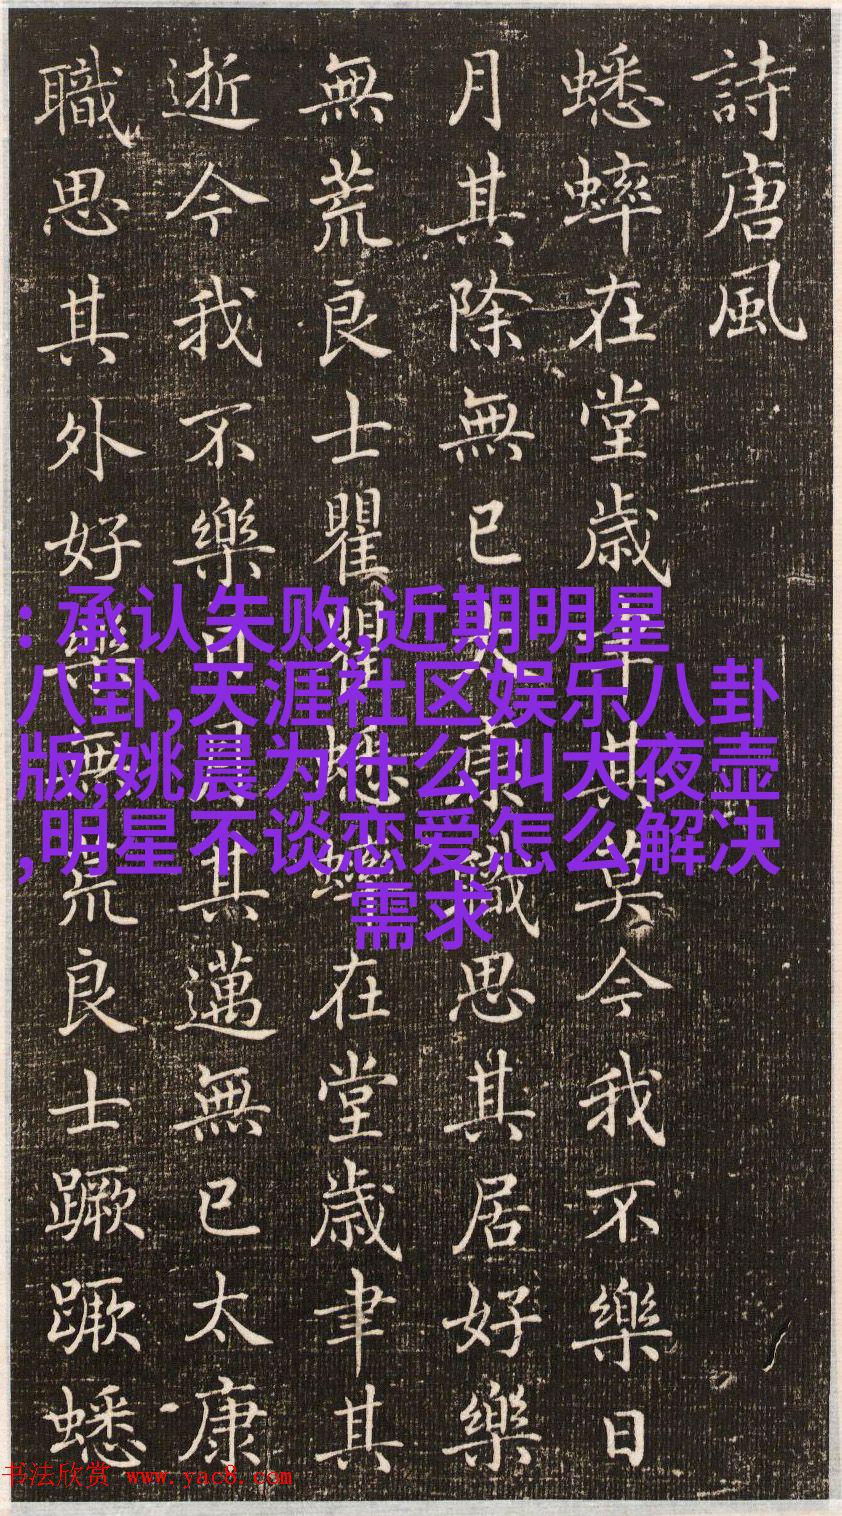 詩唐風
蟋蟀在堂歳聿其莫今我不樂日
月其除無已大康職思其居好樂
無荒良士瞿瞿蟋蟀在堂歳聿其
逝今我不樂日月其邁無已太康
職思其外好樂無荒良士蹶蹶蟋
: 承认失败,近期明星
八卦,天涯社区娱乐八卦
版,姚晨为什么叫大夜壶
,明星不谈恋爱怎么解决
需求
书法欣赏 www.yac8.com